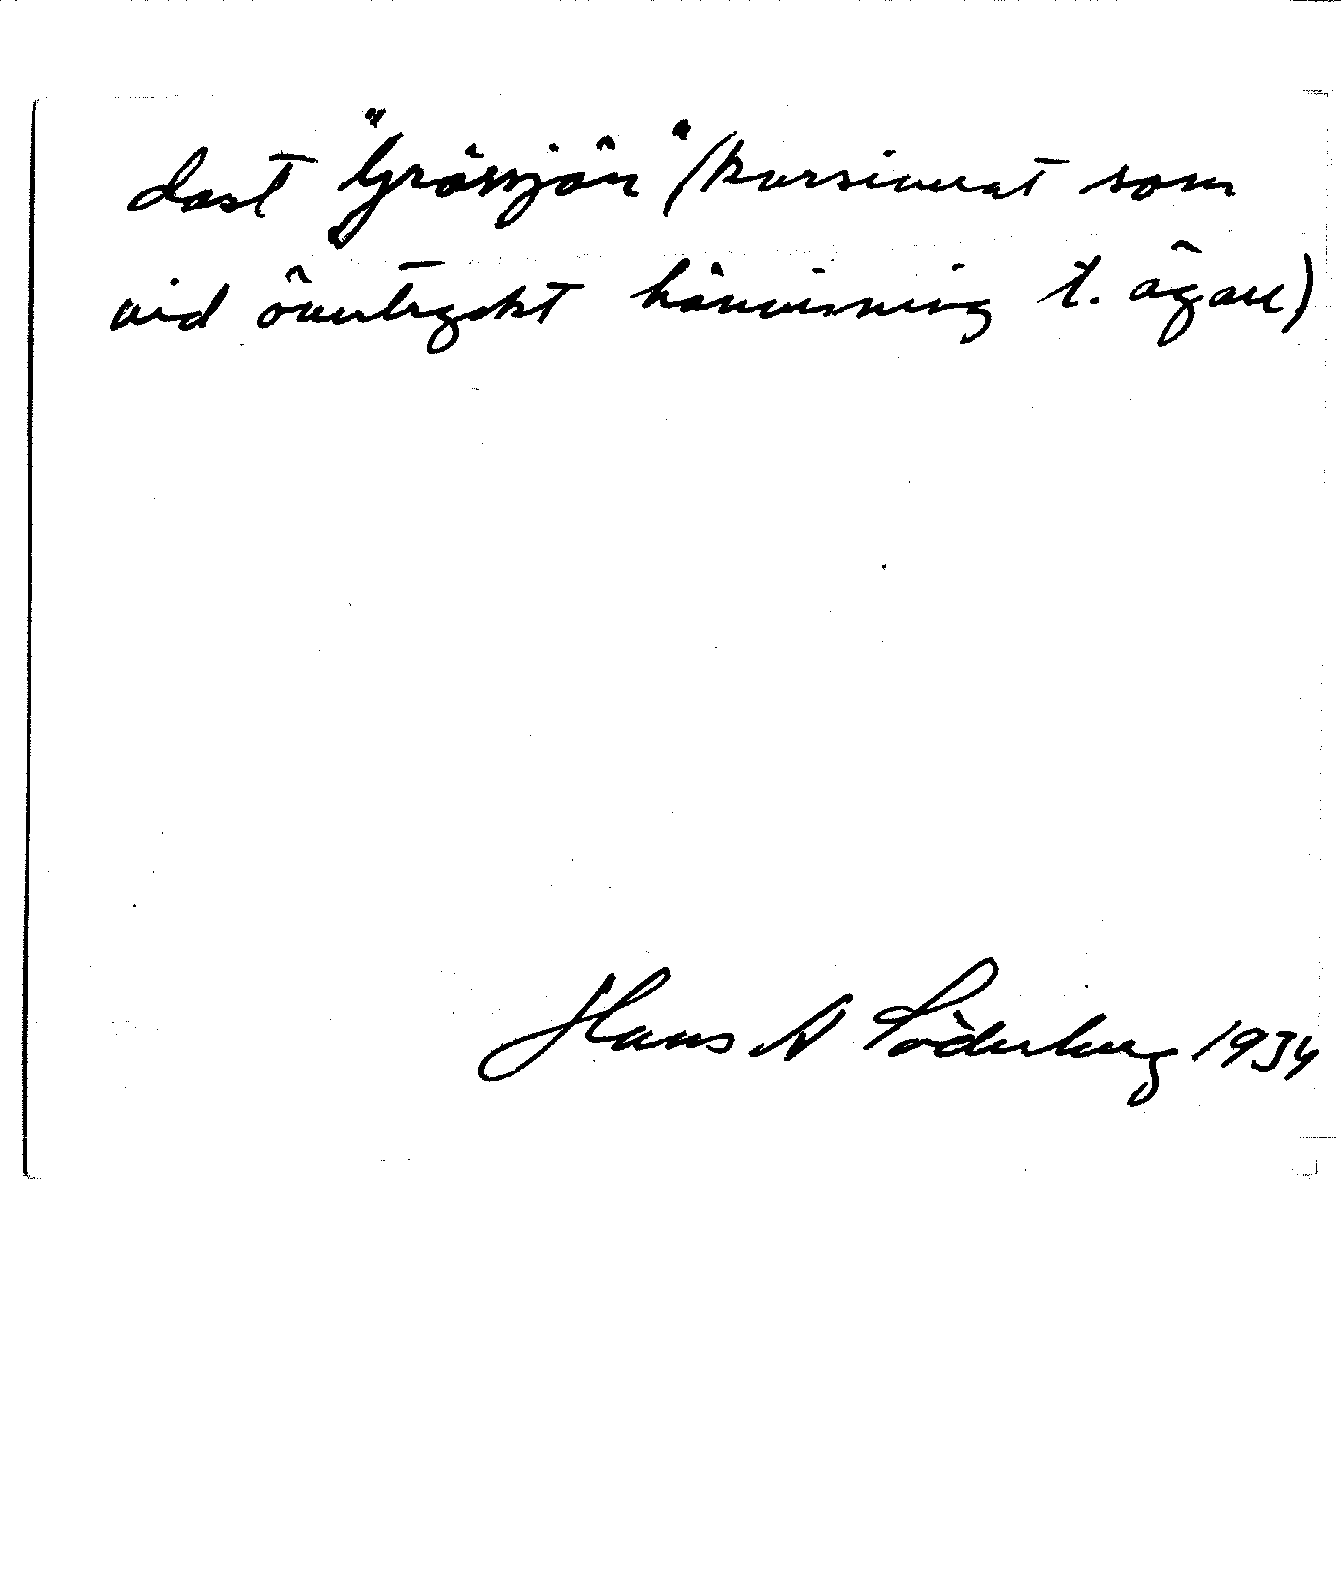 dast "Grässjön" (kursiverat som
vid övertryckt hänvisning t. ägare)
Hans W Söderberg 1934